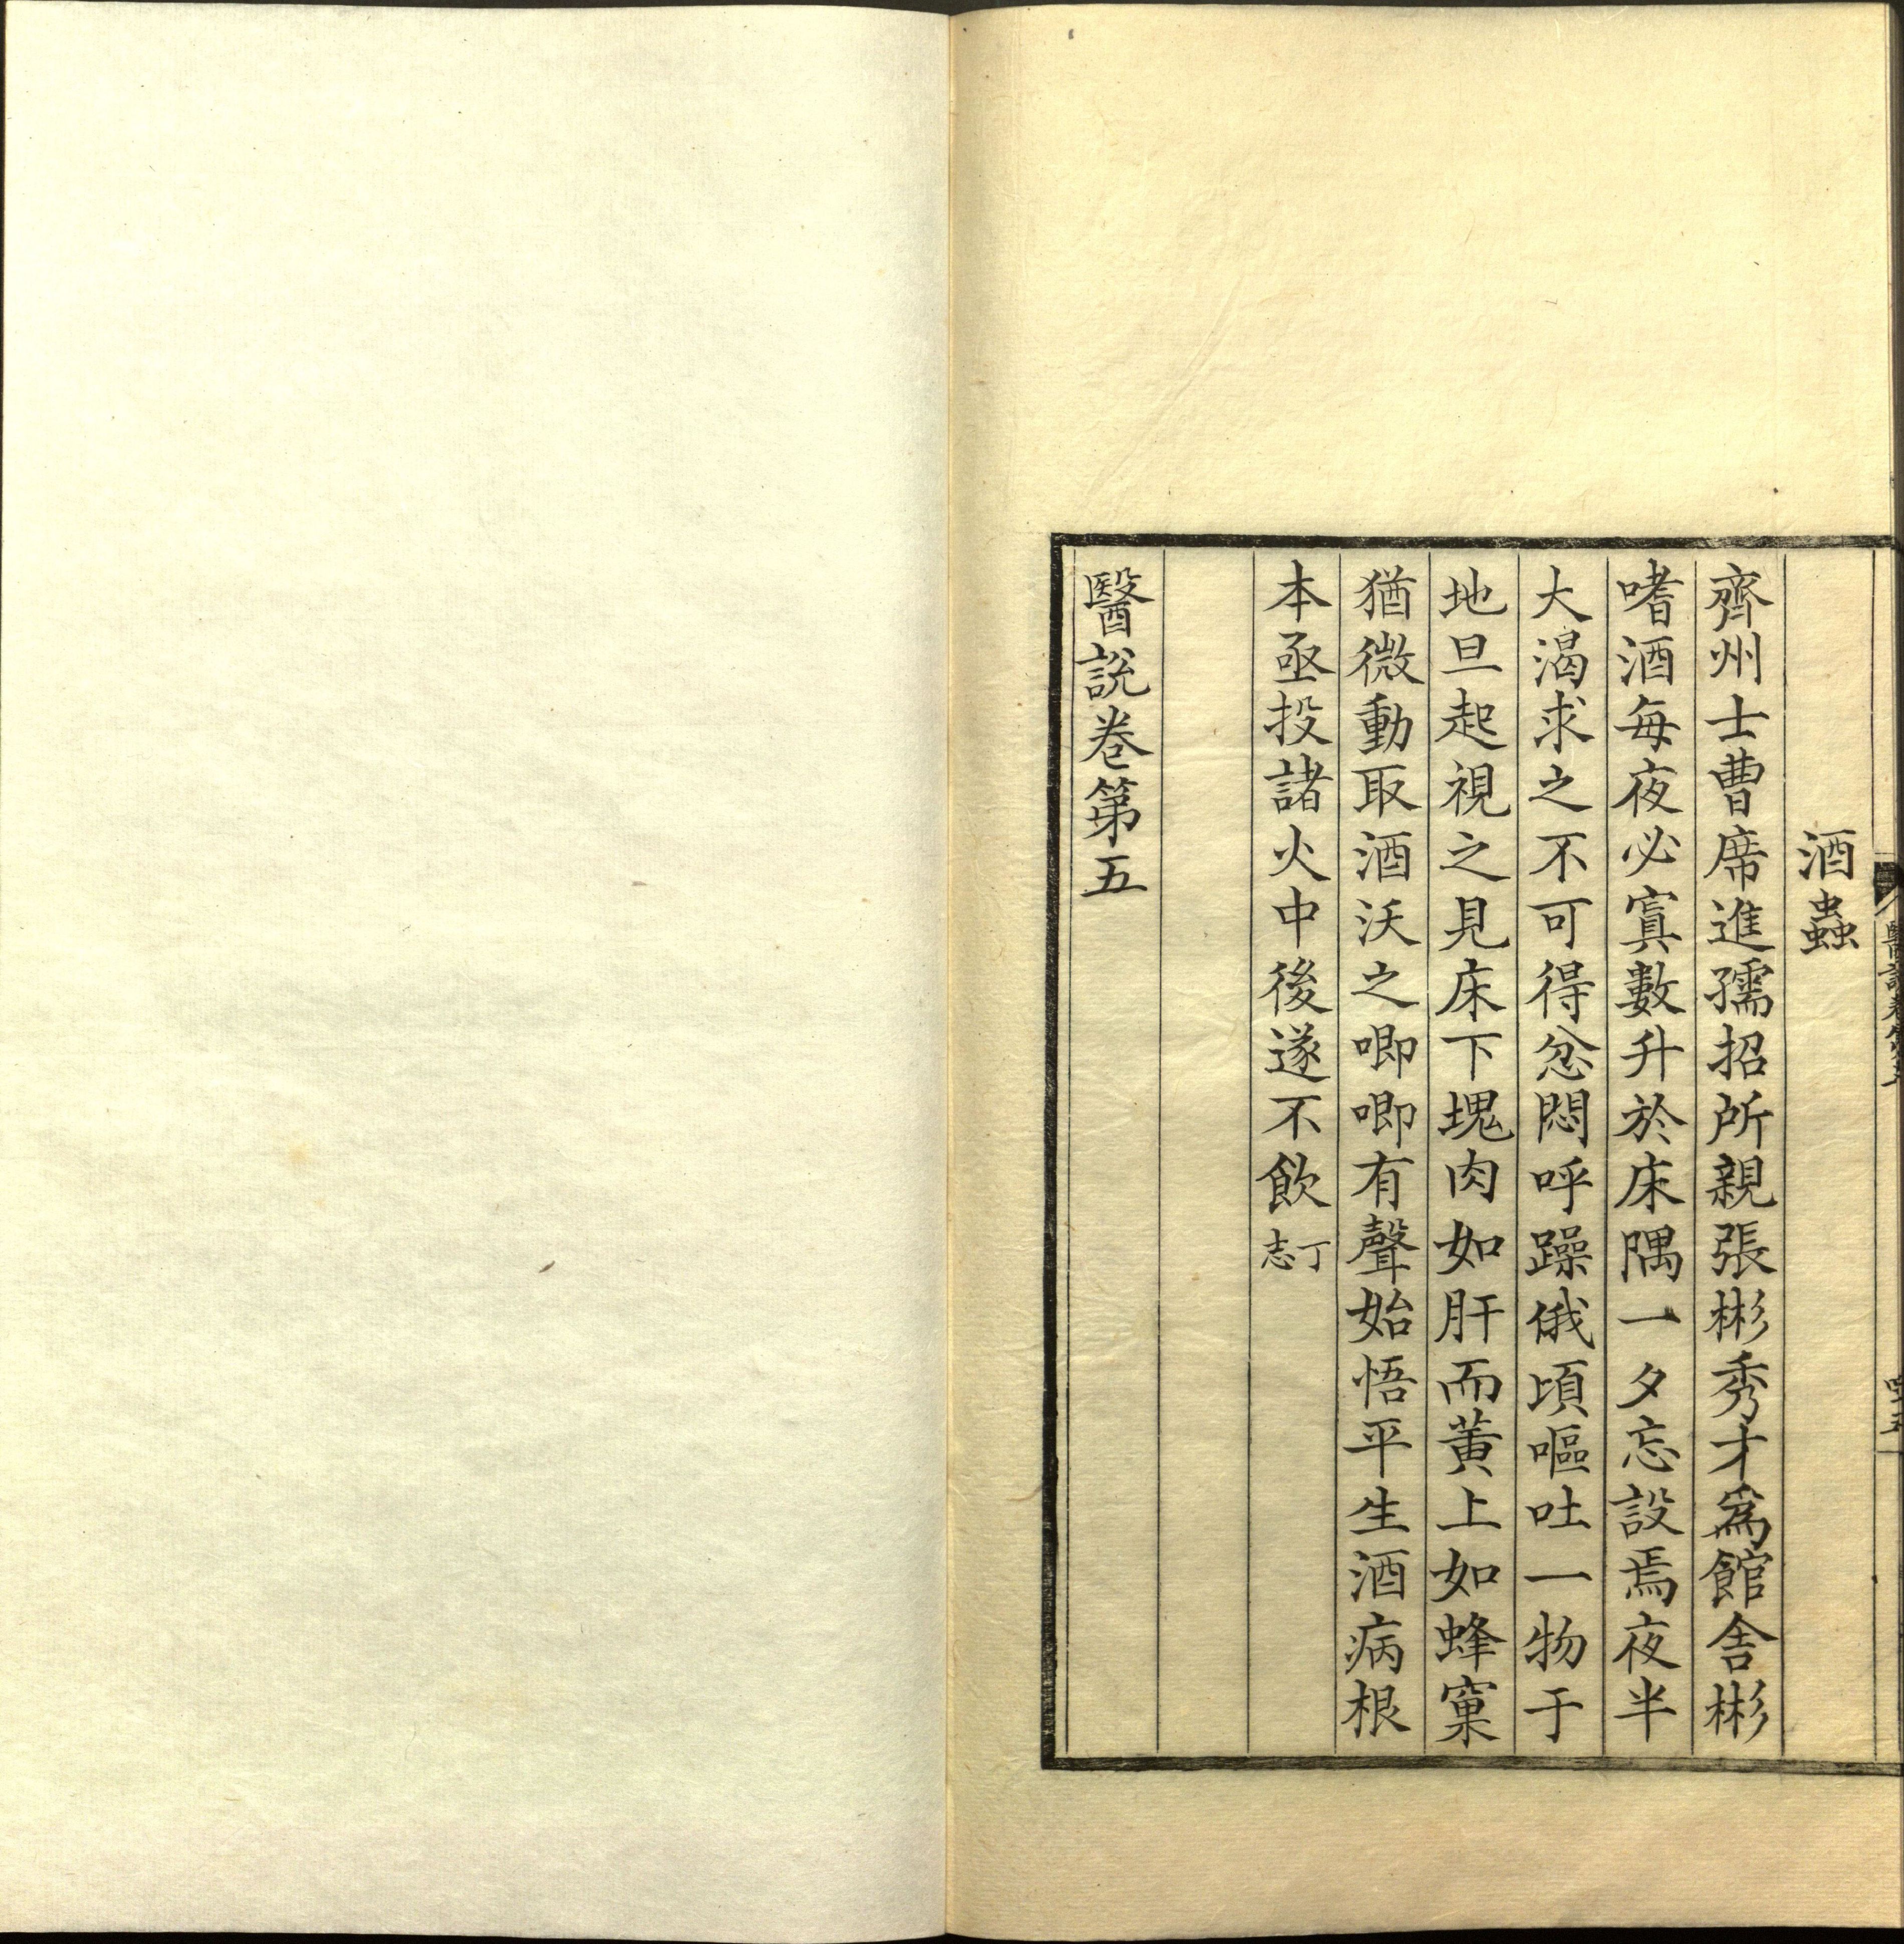 酒蟲
齊州士曹席進孺招所親張彬秀才爲館舍彬
嗜酒每夜必寘數升於床隅一夕忘設焉夜半
大渴求之不可得忿悶呼躁俄頃嘔吐一物于
地旦起視之見床下塊肉如肝而黃上如蜂窠
猶微動取酒沃之唧唧有聲始悟平生酒病根
本亟投諸火中後遂不飲丁志
醫說卷第五